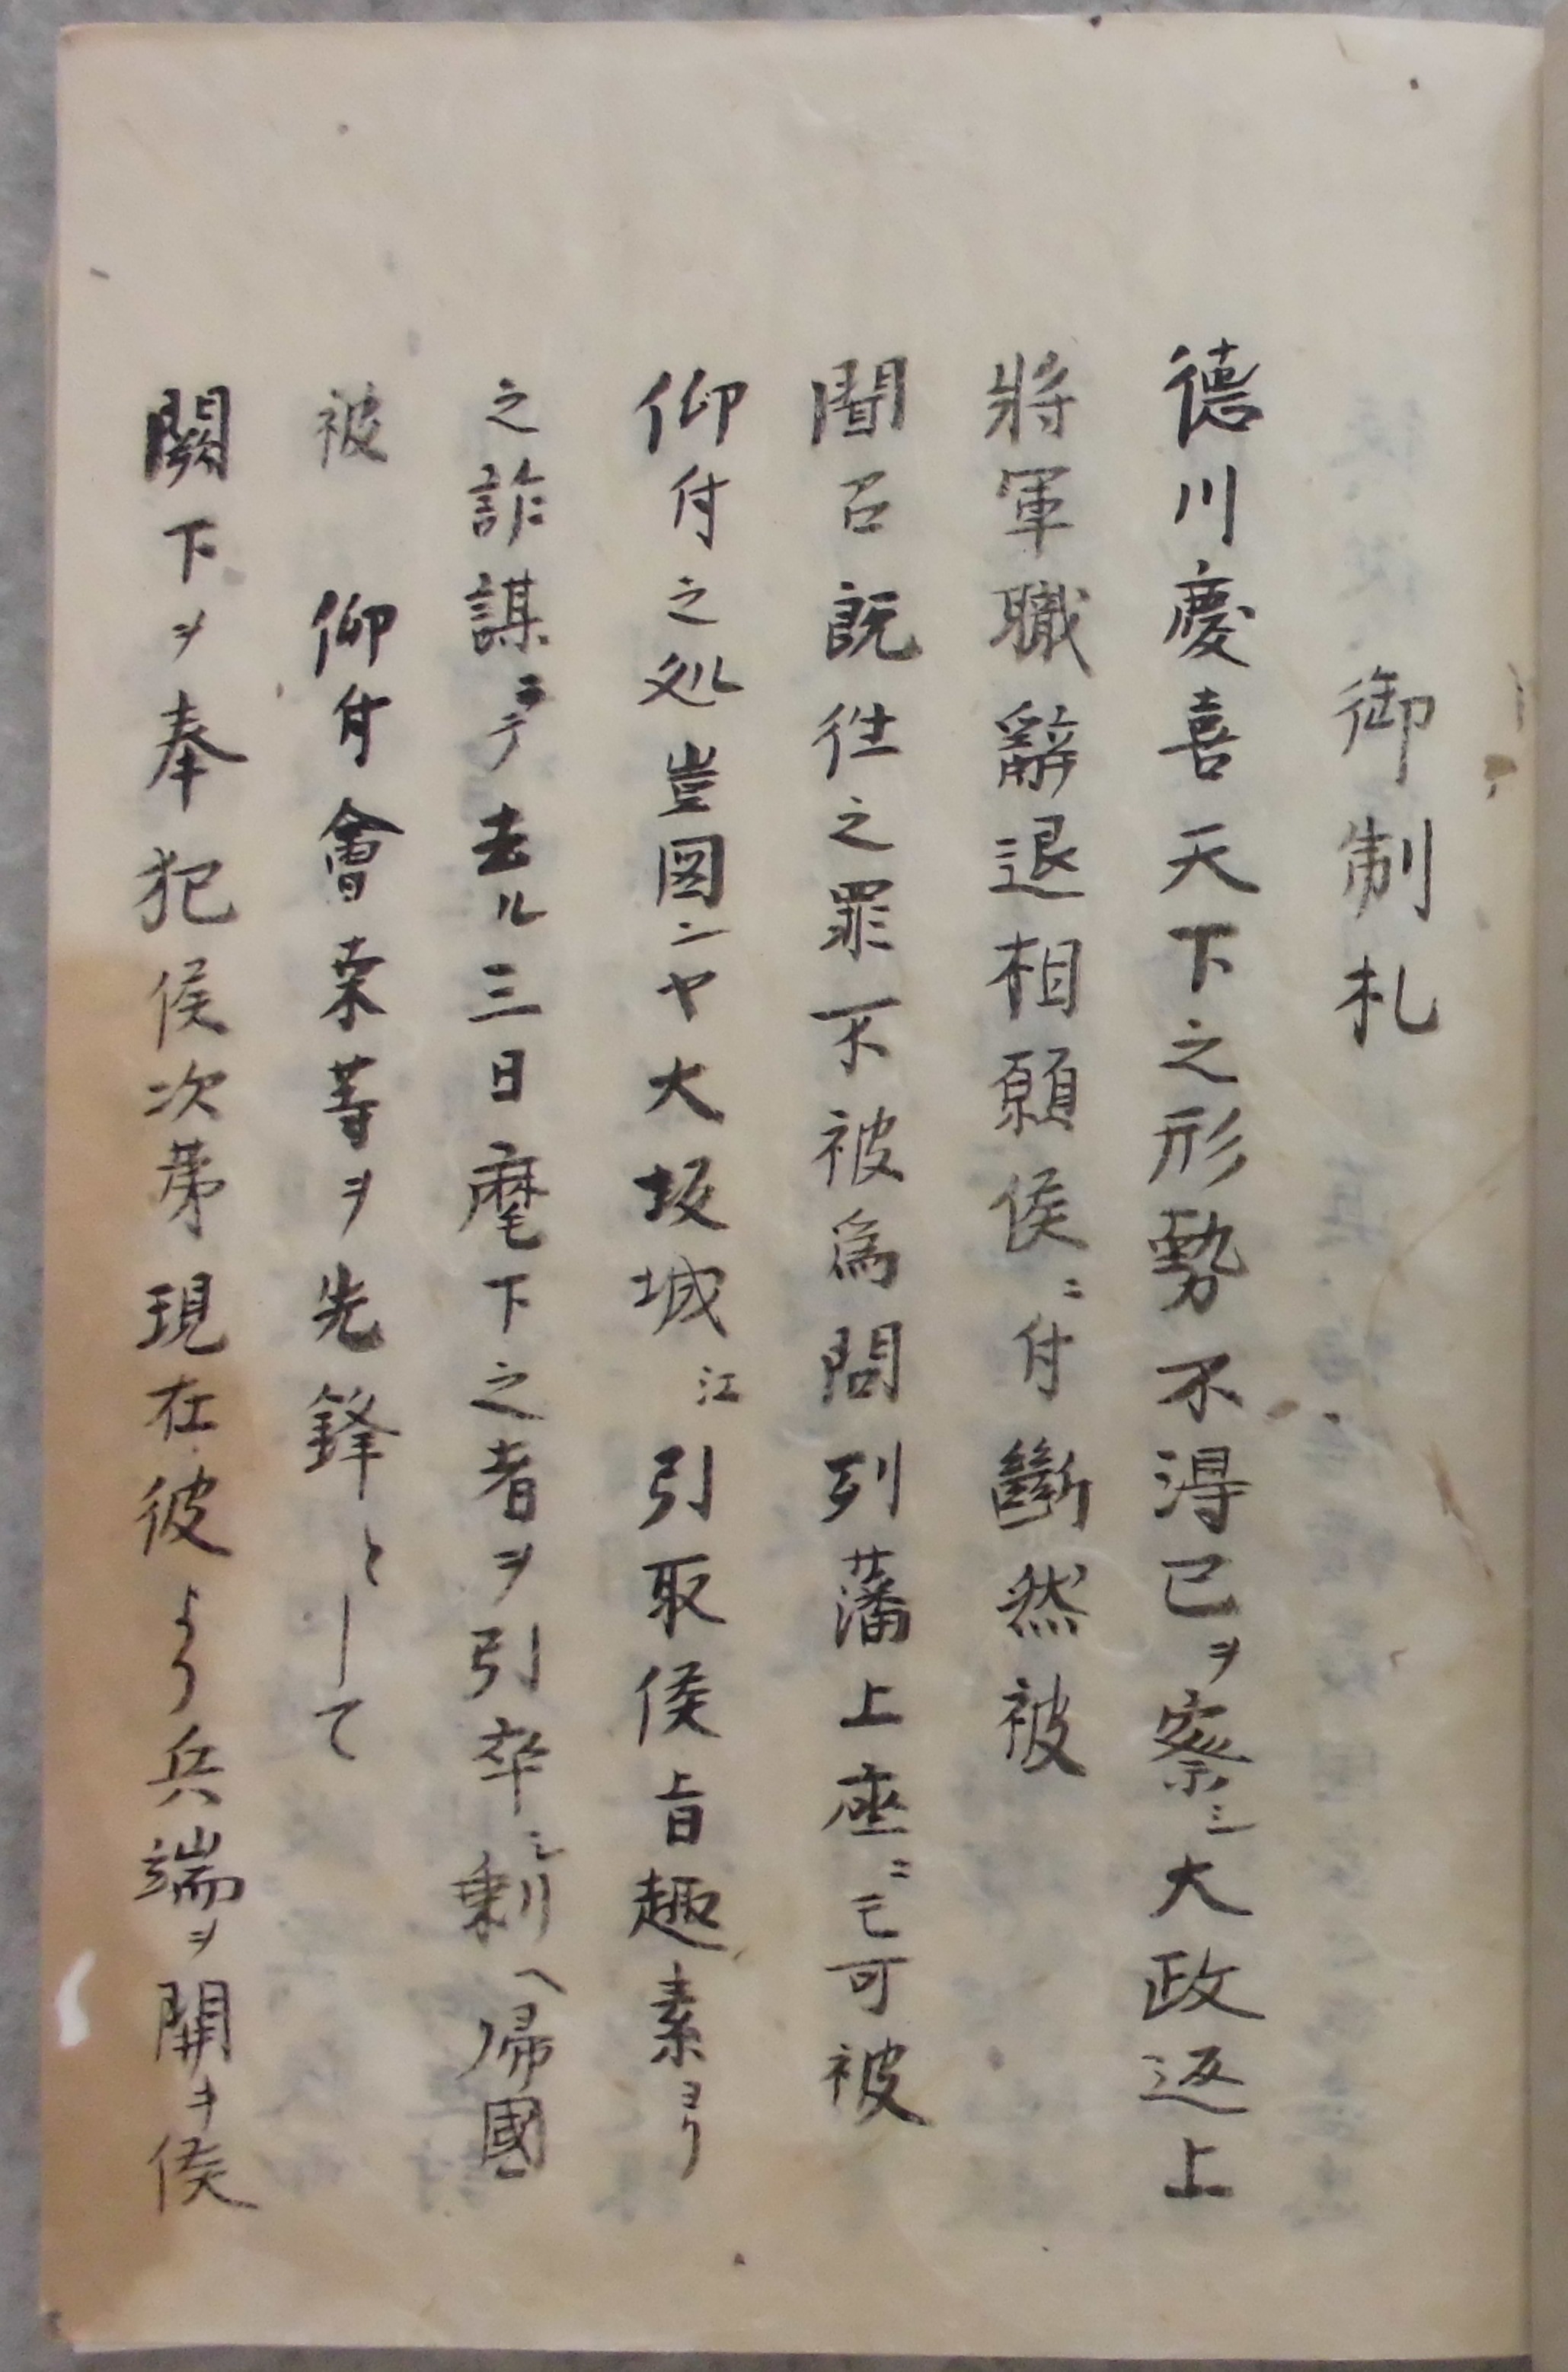 御制札
徳川慶喜天下之形勢不得已ヲ察シ大政返上
將軍職辭退相願候ニ付斷然被
聞召既往之罪不被為問列藩上座ニモ可被
仰付之処豈図ンヤ大坂城江引取候旨趣素ヨリ
之詐謀ニテ去ル三日麾下之者ヲ引卒シ剰ヘ帰國
被　仰付會桑等ヲ先鋒として
闕下ヲ奉犯候次第現在彼より兵端ヲ開キ候